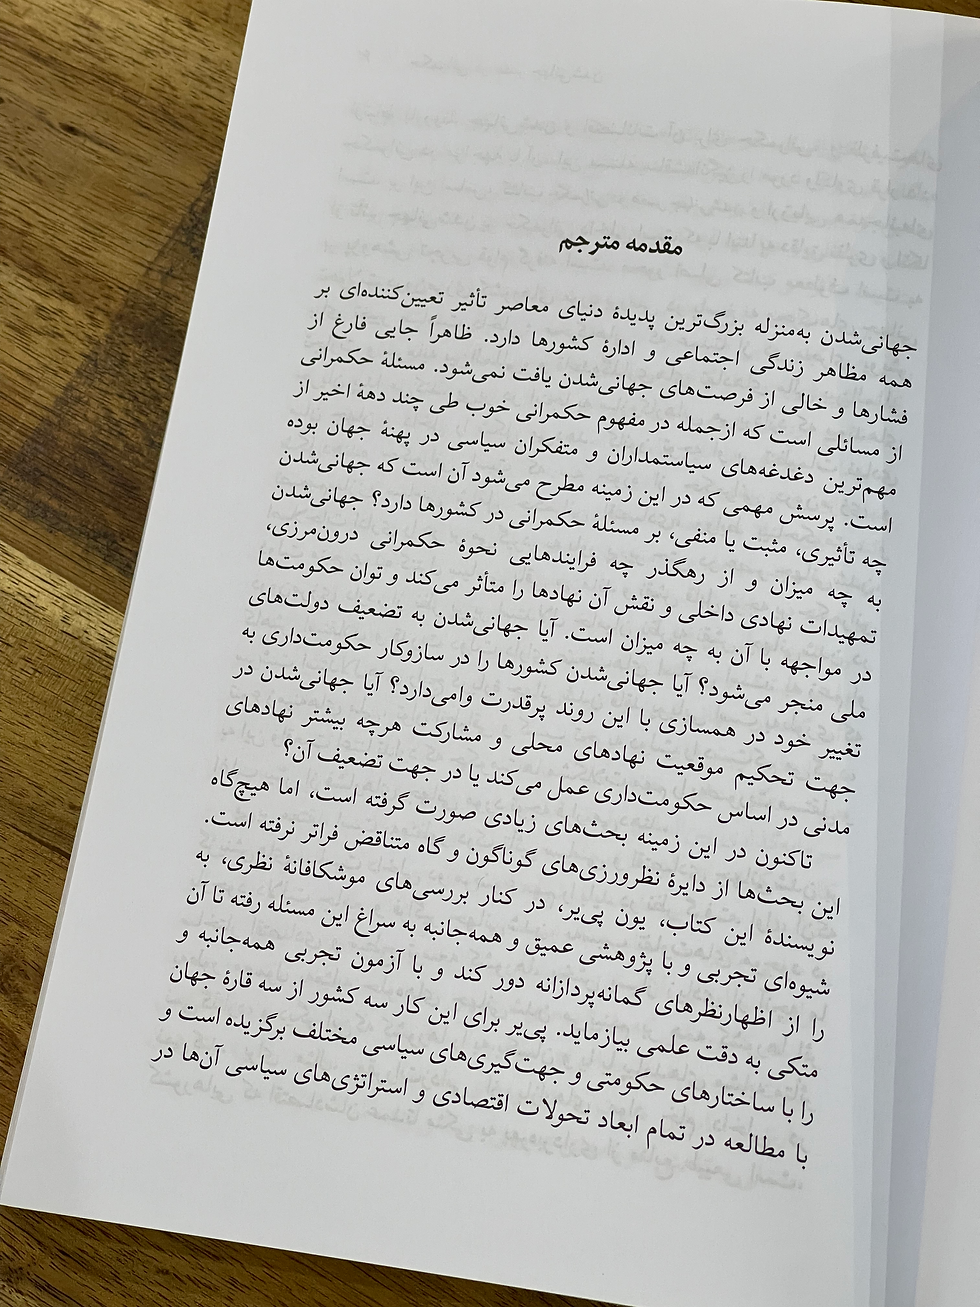 مقدمه مترجم
جهانی‌شدن به‌منزله بزرگ‌ترین پدیدهٔ دنیای معاصر تأثیر تعیین‌کننده‌ای بر
همه مظاهر زندگی اجتماعی و ادارهٔ کشورها دارد. ظاهراً جایی فارغ از
فشارها و خالی از فرصت‌های جهانی‌شدن یافت نمی‌شود. مسئلهٔ حکمرانی
از مسائلی است که ازجمله در مفهوم حکمرانی خوب طی چند دههٔ اخیر از
مهم‌ترین دغدغه‌های سیاستمداران و متفکران سیاسی در پهنهٔ جهان بوده
است. پرسش مهمی که در این زمینه مطرح می‌شود آن است که جهانی‌شدن
چه تأثیری، مثبت یا منفی، بر مسئلهٔ حکمرانی در کشورها دارد؟ جهانی‌شدن
به چه میزان و از رهگذر چه فرایندهایی نحوهٔ حکمرانی درون‌مرزی،
تمهیدات نهادی داخلی و نقش آن نهادها را متأثر می‌کند و توان حکومت‌ها
در مواجهه با آن به چه میزان است. آیا جهانی‌شدن به تضعیف دولت‌های
ملی منجر می‌شود؟ آیا جهانی‌شدن کشورها را در سازوکار حکومت‌داری به
تغییر خود در همسازی با این روند پرقدرت وامی‌دارد؟ آیا جهانی‌شدن در
جهت تحکیم موقعیت نهادهای محلی و مشارکت هرچه بیشتر نهادهای
مدنی در اساس حکومت‌داری عمل می‌کند یا در جهت تضعیف آن؟
تاکنون در این زمینه بحث‌های زیادی صورت گرفته است، اما هیچ‌گاه
این بحث‌ها از دایرهٔ نظرورزی‌های گوناگون و گاه متناقض فراتر نرفته است.
نویسندهٔ این کتاب، یون پی‌یر، در کنار بررسی‌های موشکافانهٔ نظری، به
شیوه‌ای تجربی و با پژوهشی عمیق و همه‌جانبه به سراغ این مسئله رفته تا آن
را از اظهارنظرهای گمانه‌پردازانه دور کند و با آزمون تجربی همه‌جانبه و
متکی به دقت علمی بیازماید. پی‌یر برای این کار سه کشور از سه قارهٔ جهان
را با ساختارهای حکومتی و جهت‌گیری‌های سیاسی مختلف برگزیده است و
با مطالعه در تمام ابعاد تحولات اقتصادی و استراتژی‌های سیاسی آن‌ها در